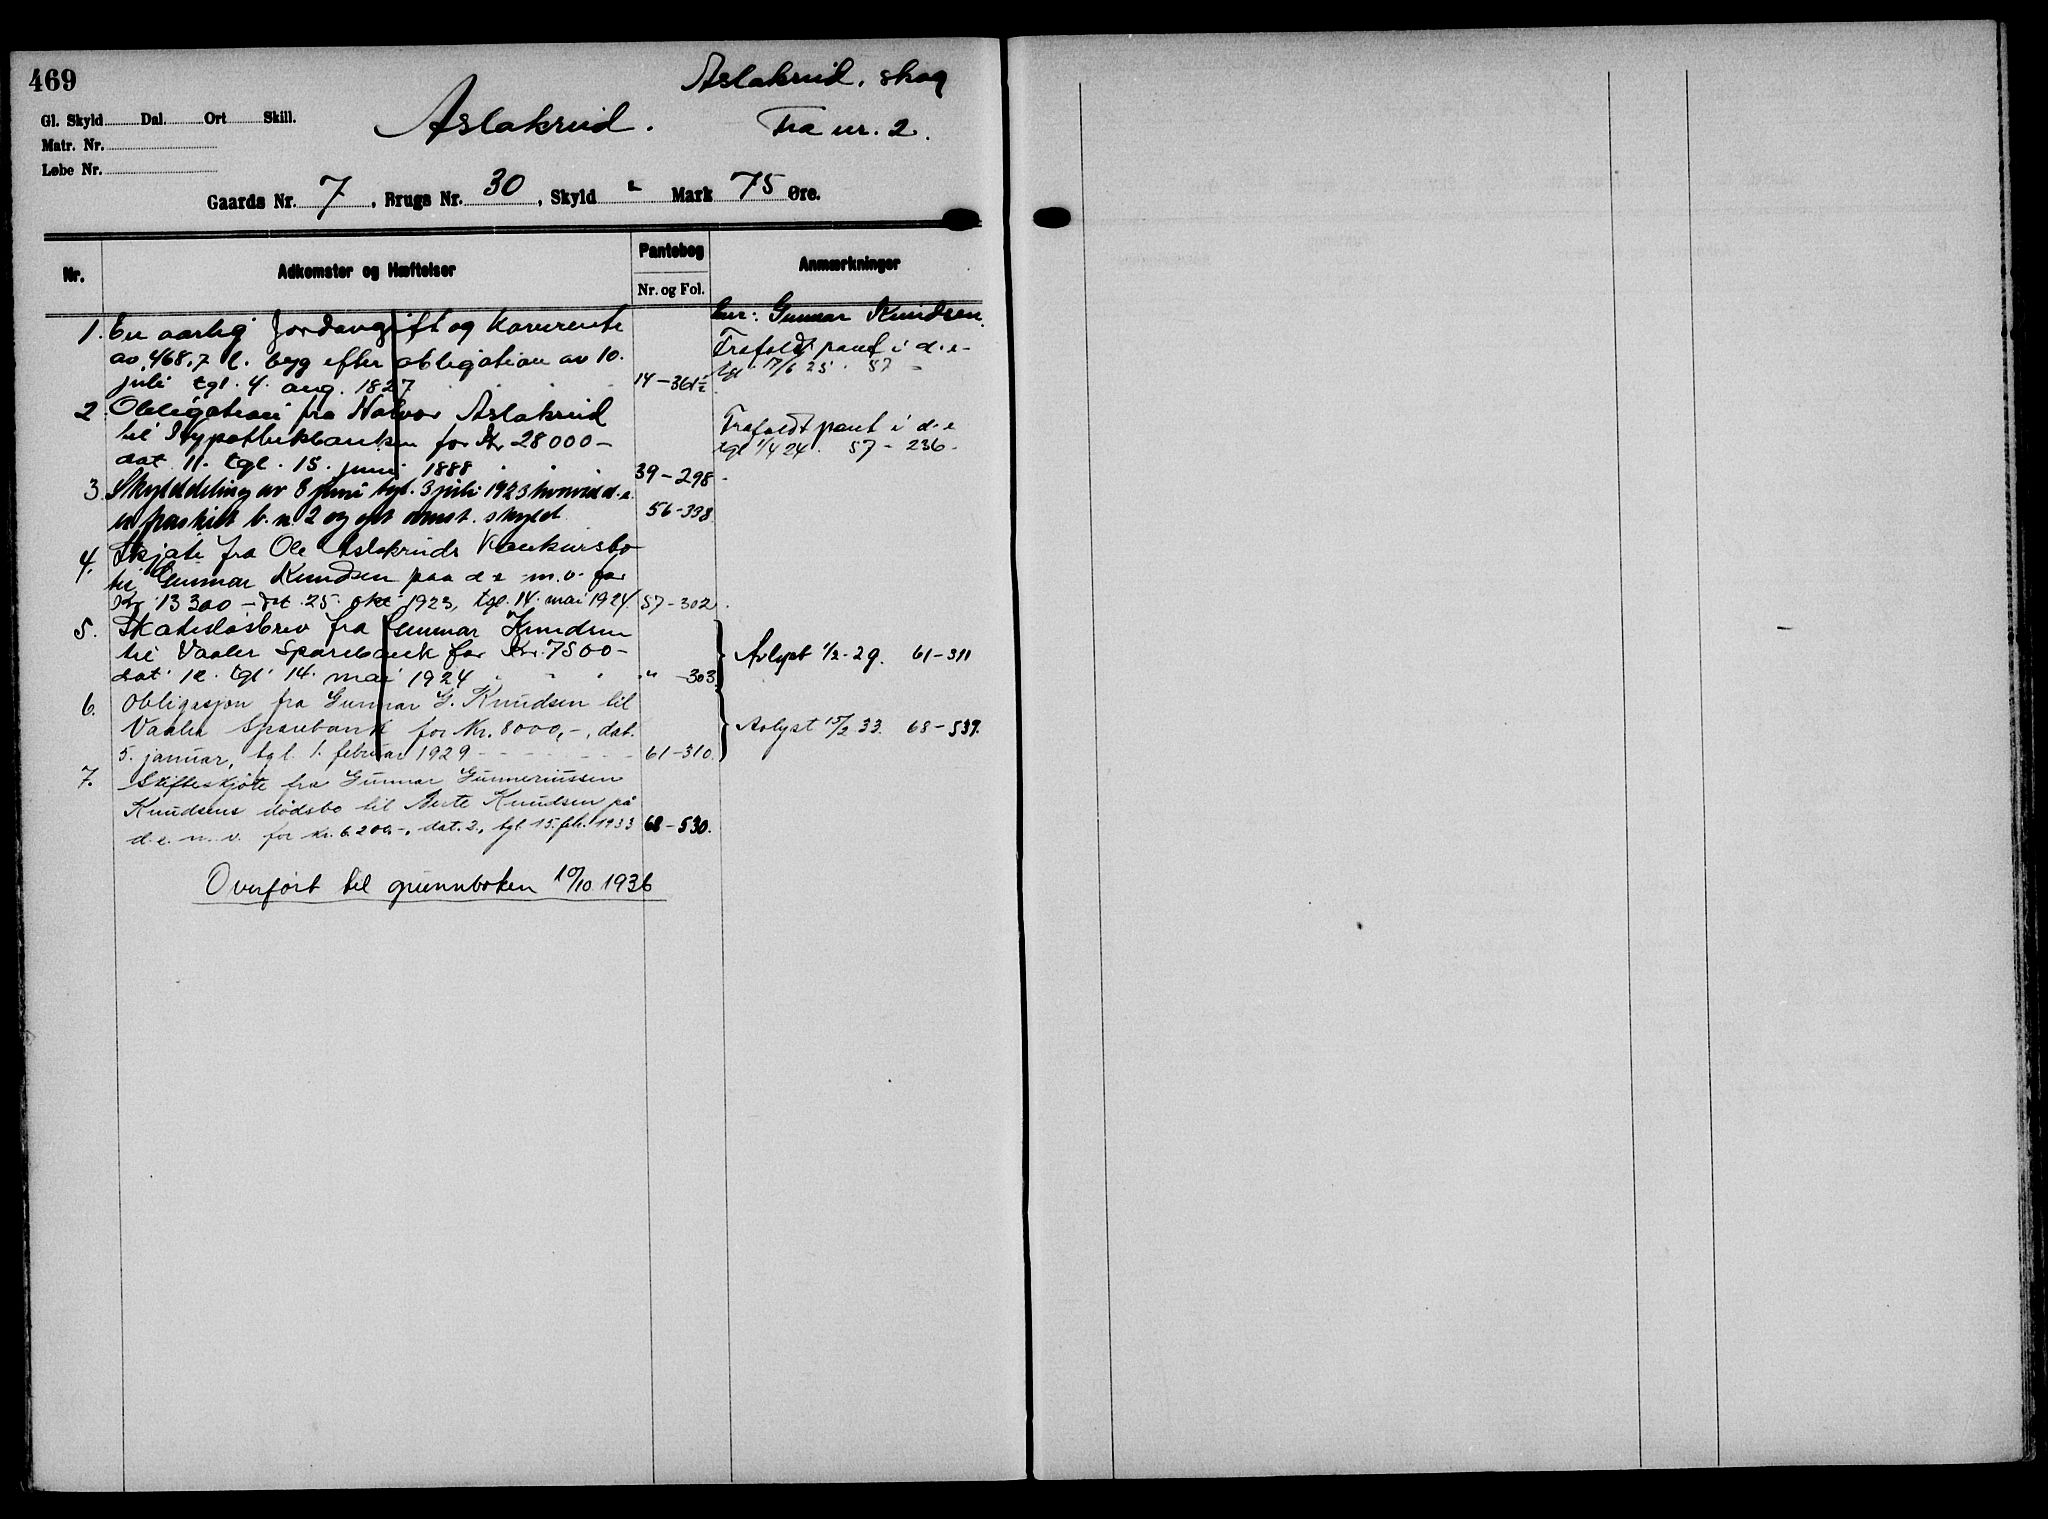 469
Aslakrud, skog
Gl. Skyld Dal. Ort Skill.
Aslakrud.
Fra nr. 2.
Matr. Nr.
Løbe Nr.
Gaards Nr. 7, Brugs Nr. 30, Skyld " Mark 75 Øre.
Nr.
Adkomster og Hæftelser
Pantebog
Nr. og Fol.
Anmærkninger
Gunnar Knudsen.
1. En aarlig Jordavgift og Kornrente
av 468,7 l. byg efter obligation av 10.
juli tgl. 4. aug. 1827 14-361½
Frafaldt pant i d. e.
tgl. 17/6 25. 57 -
2. Obligation fra Halvor Aslakrud
til Hypothekbanken for Kr 28000-
dat. 11. tgl. 15. juni 1888 39-298.
Frafaldt pant i d. e
tgl 1/4 24. 57-236-
3. Skylddeling av 8 juni tgl. 3 juli 1923 hvorved d. e.
er fraskilt b. n. 2 og git anst. skyld. 56-398.
4. Skjøte fra Ole Aslakruds Konkursbo
til Gunnar Knudsen paa d e m. v. for
Kr. 13300- dat. 25. okt 1923, tgl. 14. mai 1924 57-302.
5. Skadesløsbrev fra Gunnar Knudsen
til Vaaler Sparebank for Kr. 7500-
dat. 12. tgl. 14. mai 1924 " -303.
Avlyst 1/2-29. 61-311
6. Obligasjon fra Gunnar G. Knudsen til
Vaaler Sparebank for Kr. 8000,-, dat.
5. januar, tgl. 1. februar 1929 - - - 61-310.
Avlyst 15/2 33. 68-539.
7. Skifteskjøte fra Gunnar Gunneriussen
Knudsens dødsbo til Berte Knudsen på
d. e. m. v. for kr. 6200,-, dat. 2., tgl. 15. feb. 1933 68-530.
Overført til grunnboken 10/10 1936